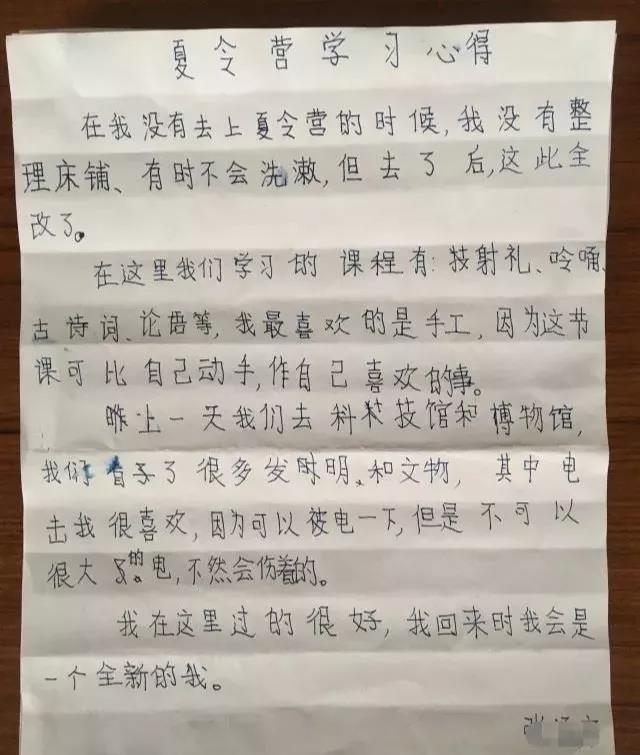 夏令营学习心得
在我没有去上夏令营的时候,我没有整
理床铺、有时不会洗漱,但去了后,这此全
改了。
在这里我们学习的课程有:投射礼、呤唷、
古诗词、论语等,我最喜欢的是手工,因为这节
课可比自己动手,作自己喜欢的事。
昨上一天我们去科技馆和博物馆,
我们看了很多发明、和文物,其中电
击我很喜欢,因为可以被电一下,但是不可以
很大的电,不然会伤着的。
我在这里过的很好,我回来时我会是
一个全新的我。
张